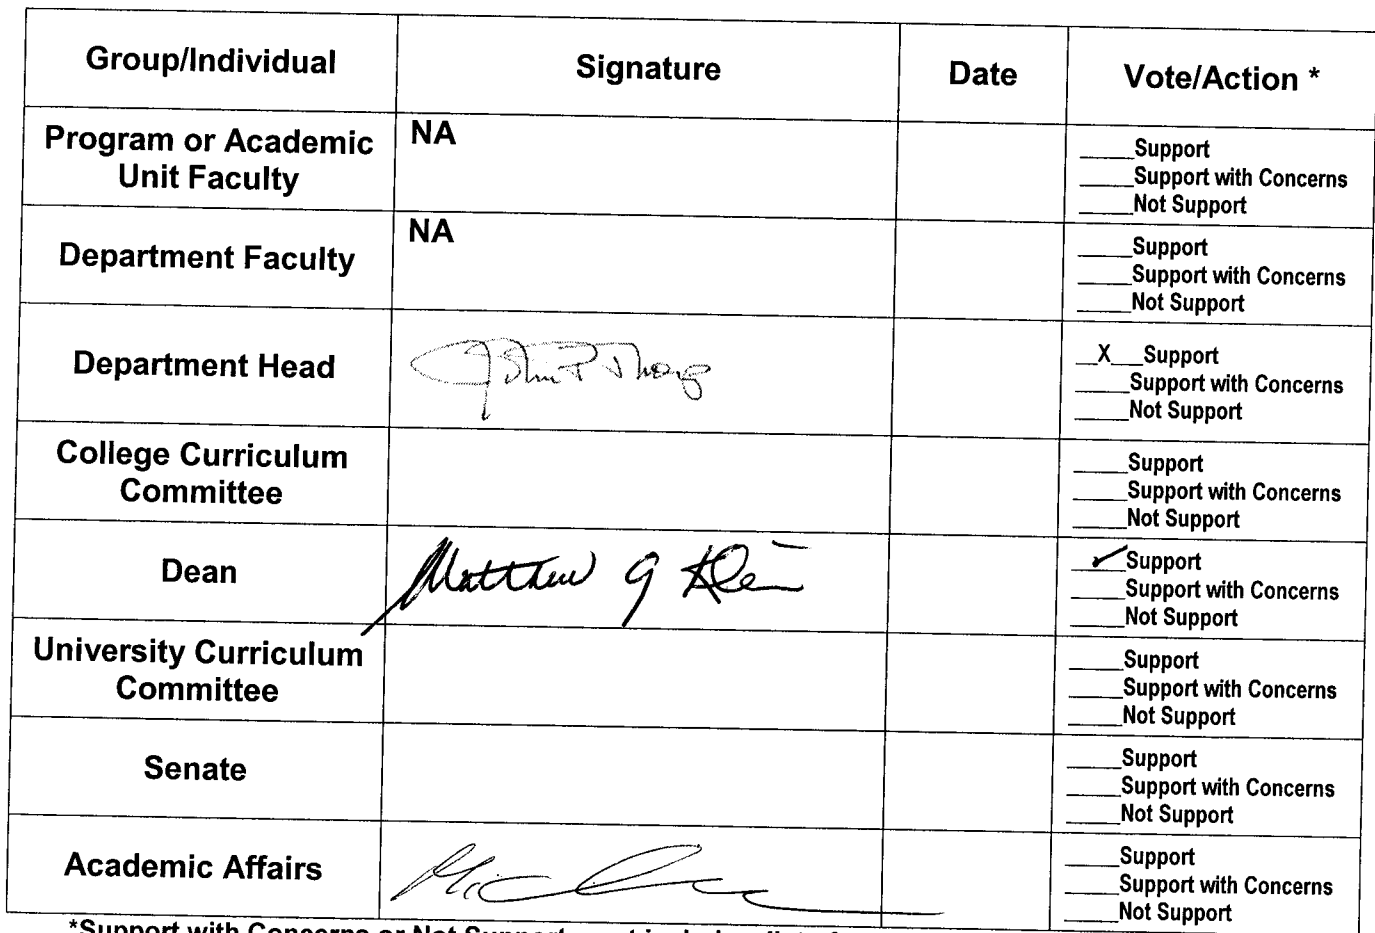 Group/Individual Signature Date Vote/Action *
Program or Academic
Unit Faculty
NA
____Support
____Support with Concerns
____Not Support
Department Faculty
NA
____Support
____Support with Concerns
____Not Support
Department Head
John P Thong
__X__Support
____Support with Concerns
____Not Support
College Curriculum
Committee
____Support
____Support with Concerns
____Not Support
Dean
Matthew G Klein
__✓__Support
____Support with Concerns
____Not Support
University Curriculum
Committee
____Support
____Support with Concerns
____Not Support
Senate
____Support
____Support with Concerns
____Not Support
Academic Affairs
____Support
____Support with Concerns
____Not Support
*Support with Concerns or Not Support